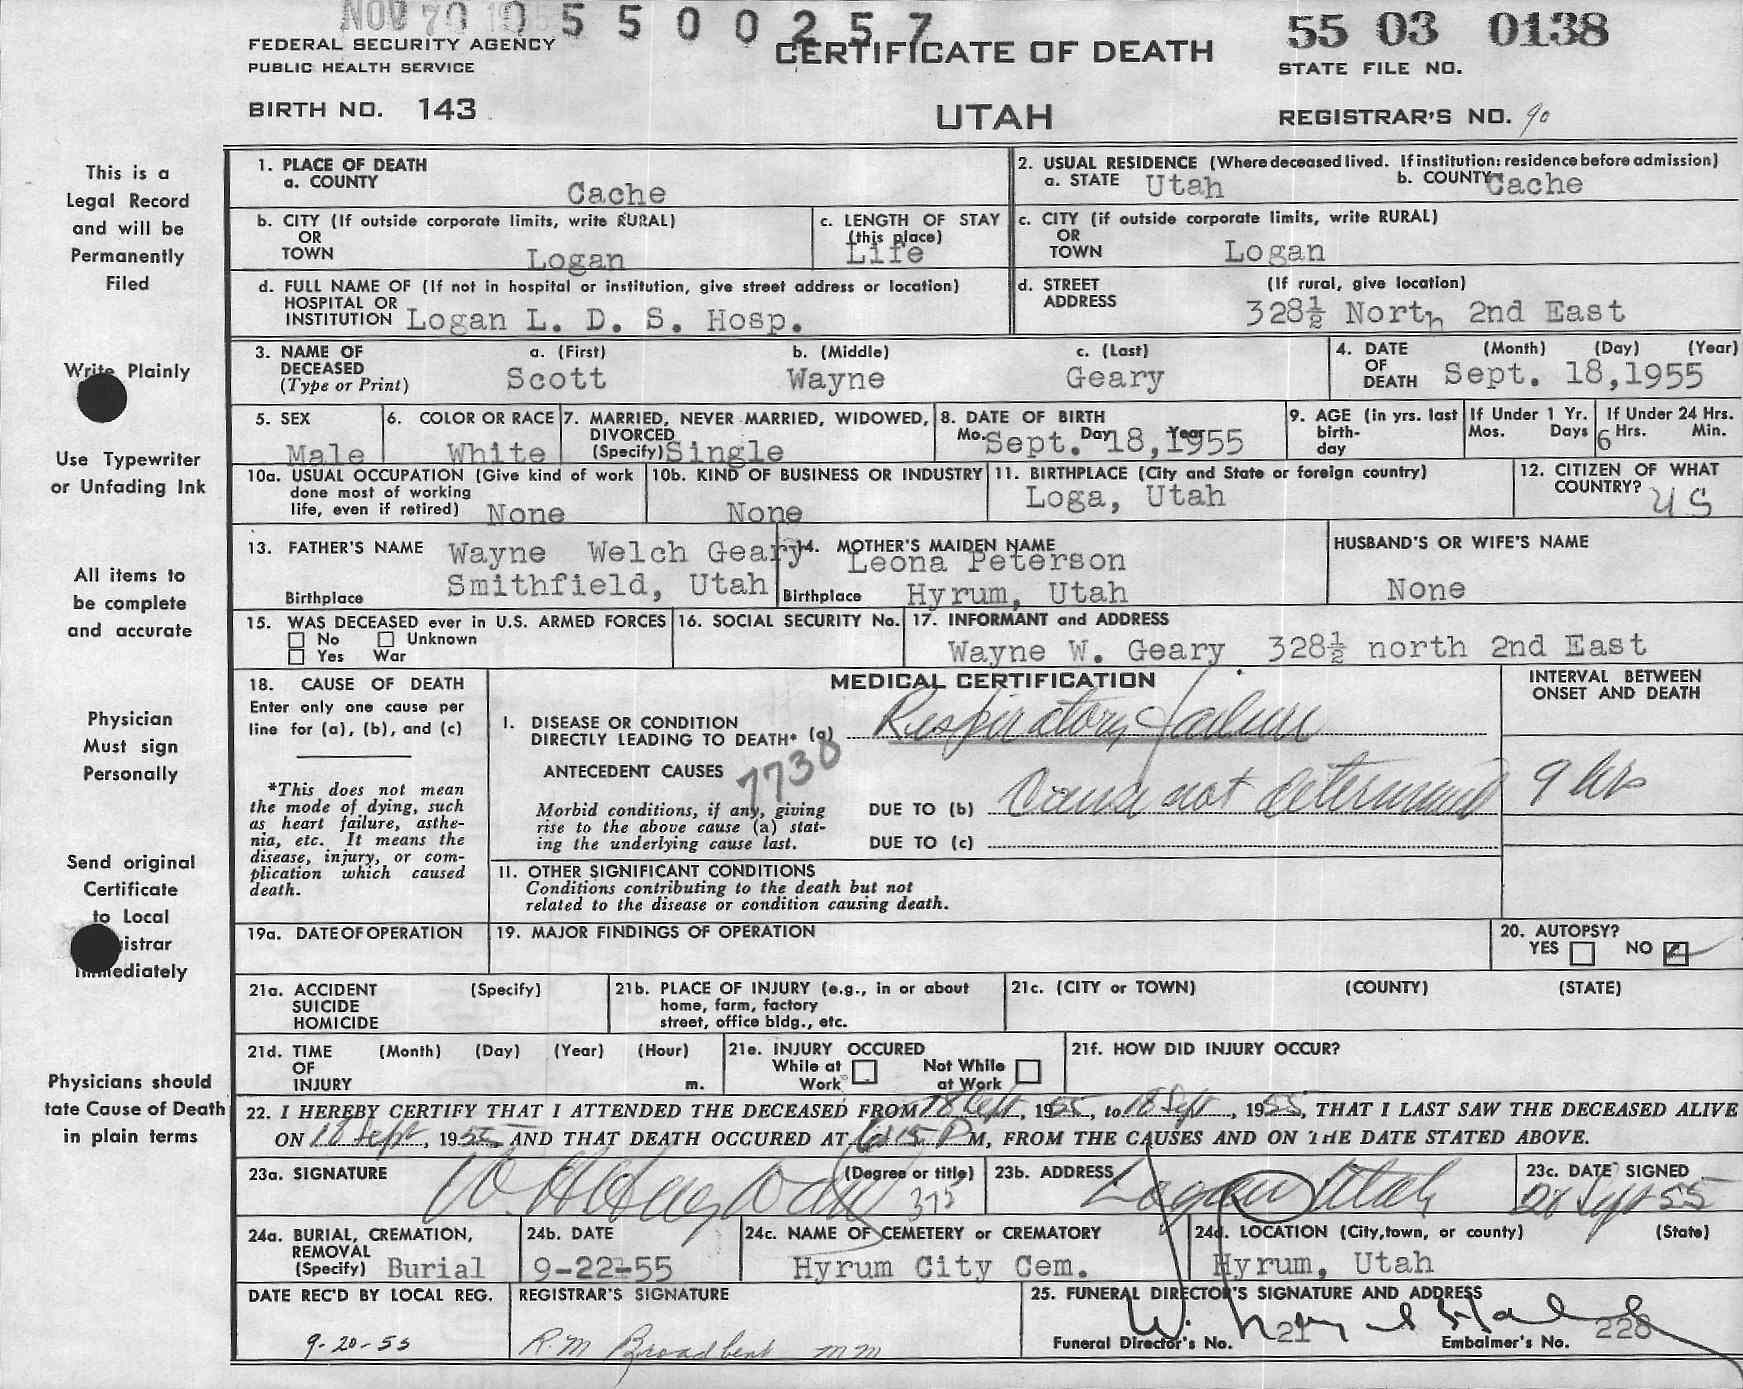 NOV 70 19 0 5 5 0 0 2 5 7
55 03 0138
FEDERAL SECURITY AGENCY
PUBLIC HEALTH SERVICE
CERTIFICATE OF DEATH
STATE FILE NO.
BIRTH NO. 143
UTAH
REGISTRAR'S NO. 90
This is a
Legal Record
and will be
Permanently
Filed
Write Plainly
Use Typewriter
or Unfading Ink
All items to
be complete
and accurate
Physician
Must sign
Personally
Send original
Certificate
to Local
istrar
mmediately
Physicians should
tate Cause of Death
in plain terms
1. PLACE OF DEATH
a. COUNTY Cache
2. USUAL RESIDENCE (Where deceased lived. If institution: residence before admission)
a. STATE Utah b. COUNTY Cache
b. CITY (If outside corporate limits, write RURAL)
OR
TOWN Logan
c. LENGTH OF STAY
(this place)
Life
c. CITY (if outside corporate limits, write RURAL)
OR
TOWN Logan
d. FULL NAME OF (If not in hospital or institution, give street address or location)
HOSPITAL OR
INSTITUTION Logan L. D. S. Hosp.
d. STREET (If rural, give location)
ADDRESS 328½ North 2nd East
3. NAME OF
DECEASED
(Type or Print)
a. (First) b. (Middle) c. (Last)
Scott Wayne Geary
4. DATE (Month) (Day) (Year)
OF
DEATH Sept. 18,1955
5. SEX
Male
6. COLOR OR RACE
White
7. MARRIED, NEVER MARRIED, WIDOWED,
DIVORCED
(Specify) Single
8. DATE OF BIRTH
Mo. Day Year
Sept. 18,1955
9. AGE (in yrs. last
birth-
day
If Under 1 Yr.
Mos. Days
If Under 24 Hrs.
6 Hrs. Min.
10a. USUAL OCCUPATION (Give kind of work
done most of working
life, even if retired) None
10b. KIND OF BUSINESS OR INDUSTRY
None
11. BIRTHPLACE (City and State or foreign country)
Loga, Utah
12. CITIZEN OF WHAT
COUNTRY? US
13. FATHER'S NAME Wayne Welch Geary
Birthplace Smithfield, Utah
14. MOTHER'S MAIDEN NAME
Leona Peterson
Birthplace Hyrum, Utah
HUSBAND'S OR WIFE'S NAME
None
15. WAS DECEASED ever in U.S. ARMED FORCES
No Unknown
Yes War
16. SOCIAL SECURITY No.
17. INFORMANT and ADDRESS
Wayne W. Geary 328½ north 2nd East
18. CAUSE OF DEATH
Enter only one cause per
line for (a), (b), and (c)
*This does not mean
the mode of dying, such
as heart failure, asthe-
nia, etc. It means the
disease, injury, or com-
plication which caused
death.
MEDICAL CERTIFICATION
INTERVAL BETWEEN
ONSET AND DEATH
I. DISEASE OR CONDITION
DIRECTLY LEADING TO DEATH* (a) Respiratory failure
7738
ANTECEDENT CAUSES
Morbid conditions, if any, giving
rise to the above cause (a) stat-
ing the underlying cause last.
DUE TO (b) Cause not determined 9 hrs
DUE TO (c)
II. OTHER SIGNIFICANT CONDITIONS
Conditions contributing to the death but not
related to the disease or condition causing death.
19a. DATE OF OPERATION
19. MAJOR FINDINGS OF OPERATION
20. AUTOPSY?
YES NO
21a. ACCIDENT (Specify)
SUICIDE
HOMICIDE
21b. PLACE OF INJURY (e.g., in or about
home, farm, factory
street, office bldg., etc.
21c. (CITY or TOWN) (COUNTY) (STATE)
21d. TIME (Month) (Day) (Year) (Hour)
OF
INJURY m.
21e. INJURY OCCURED
While at Not While
Work at Work
21f. HOW DID INJURY OCCUR?
22. I HEREBY CERTIFY THAT I ATTENDED THE DECEASED FROM 18 Sept, 1955, to 18 Sept, 1955, THAT I LAST SAW THE DECEASED ALIVE
ON 18 Sept, 1955 AND THAT DEATH OCCURED AT 6:15 PM, FROM THE CAUSES AND ON THE DATE STATED ABOVE.
23a. SIGNATURE (Degree or title) 375
23b. ADDRESS Logan Utah
23c. DATE SIGNED
20 Sept 55
24a. BURIAL, CREMATION,
REMOVAL
(Specify) Burial
24b. DATE
9-22-55
24c. NAME OF CEMETERY or CREMATORY
Hyrum City Cem.
24d. LOCATION (City,town, or county) (State)
Hyrum, Utah
DATE REC'D BY LOCAL REG.
9-20-55
REGISTRAR'S SIGNATURE
R.M Broadbent mm
25. FUNERAL DIRECTOR'S SIGNATURE AND ADDRESS
Funeral Director's No. 21 Embalmer's No. 228